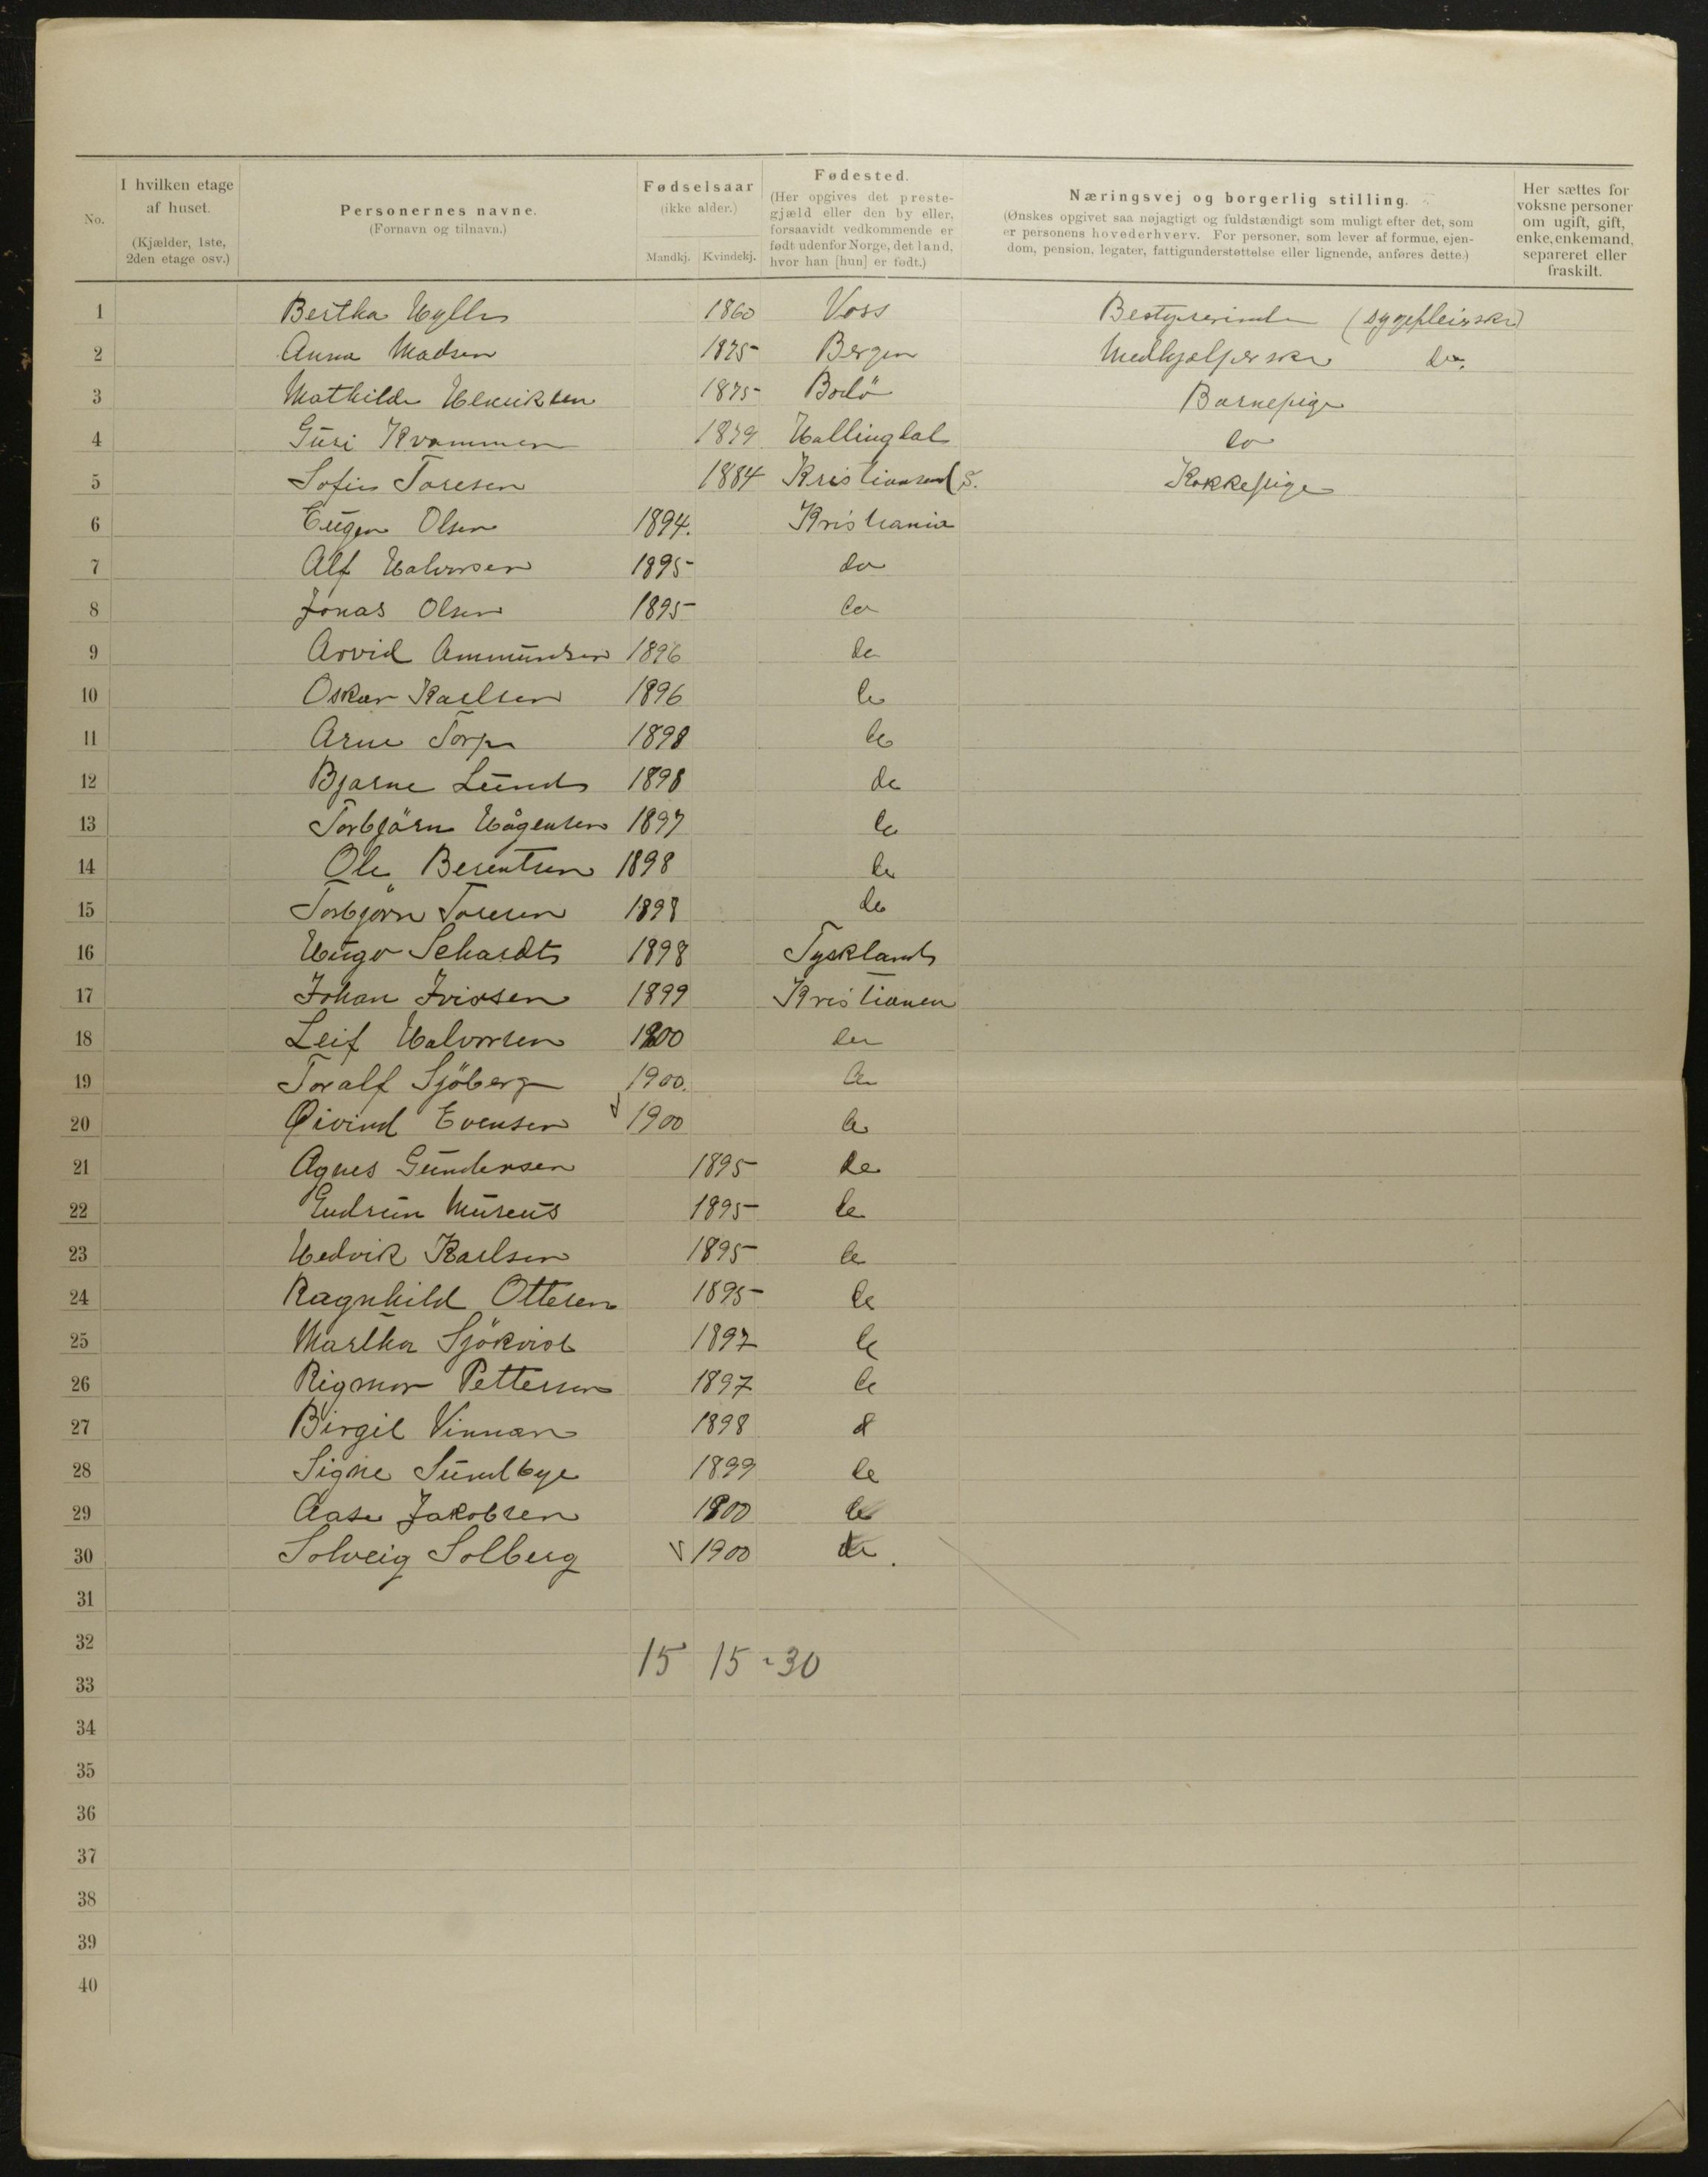 No.
I hvilken etage af huset.
(Kjælder, 1ste, 2den etage osv.)
Personernes navne.
(Fornavn og tilnavn.)
Fødselsaar
(ikke alder.)
Mandkj. Kvindekj.
Fødested.
(Her opgives det prestegjæld eller den by eller, forsaavidt vedkommende er født udenfor Norge, det land, hvor han [hun] er født.)
Næringsvej og borgerlig stilling.
(Ønskes opgivet saa nøjagtigt og fuldstændigt som muligt efter det, som er personens hovederhverv. For personer, som lever af formue, ejendom, pension, legater, fattigunderstøttelse eller lignende, anføres dette.)
Her sættes for voksne personer om ugift, gift, enke, enkemand, separeret eller fraskilt.
1 Bertha 1860 Voss Bestyrerinde (sygepleierske)
2 Anna Madsen 1875 Bergen Medhjælperske do.
3 Mathilde Henriksen 1875 Bodö Barnepige
4 Guri Kvammen 1879 Hallingdal do
5 Sofie Toresen 1884 Kristiansand S. Kokkepige
6 Eugen Olsen 1894. Kristiania
7 Alf Halvorsen 1895 do
8 Jonas Olsen 1895 do
9 Arvid Ammundsen 1896 do
10 Oskar Karlsen 1896 do
11 Arne Torp 1898 do
12 Bjarne Lund 1898 do
13 Torbjörn Hågensen 1897 do
14 Ole Berentsen 1898 do
15 Torbjörn Toresen 1898 do
16 Hugo Schardt 1898 Tyskland
17 Johan Iversen 1899 Kristiania
18 Leif Halvorsen 1900 do
19 Toralf Sjöberg 1900. do
20 Øivind Evensen 1900 do
21 Agnes Gundersen 1895 do
22 Gudrun Mureus 1895 do
23 Hedvik Karlsen 1895 do
24 Ragnhild Ottesen 1895 do
25 Martha Sjökvist 1897 do
26 Rigmor Pettersen 1897 do
27 Birgit Vinnan 1898 d
28 Signe Sundbye 1899 do
29 Aase Jakobsen 1900 do
30 Solveig Solberg 1900 do.
31
32
15 15 = 30
33
34
35
36
37
38
39
40